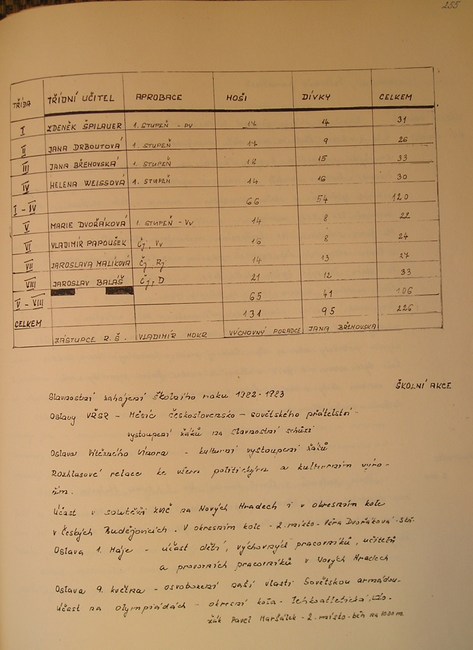 255
TŘÍDA TŘÍDNÍ UČITEL APROBACE HOŠI DÍVKY CELKEM
I ZDENĚK ŠPILAUER 1. STUPEŇ - PV 17 14 31
II JANA DRBOUTOVÁ 1. STUPEŇ 17 9 26
III JANA BŘEHOVSKÁ 1. STUPEŇ 18 15 33
IV HELENA WEISSOVÁ 1. STUPEŇ 14 16 30
I - IV 66 54 120
V MARIE DVOŘÁKOVÁ 1. STUPEŇ - VV 14 8 22
VI VLADIMÍR PAPOUŠEK Čj, Vv 16 8 24
VII JAROSLAVA MALÍKOVÁ Čj Rj 14 13 27
VIII JAROSLAV BALÁŠ Čj, D 21 12 33
V - VIII 65 41 106
CELKEM 131 95 226
ZÁSTUPCE Ř.Š. VLADIMÍR MOKR VÝCHOVNÝ PORADCE JANA BŘEHOVSKÁ
ŠKOLNÍ AKCE
Slavnostní zahájení školního roku 1982-1983
Oslavy VŘSR - Měsíc československo-sovětského přátelství -
vystoupení žáků na slavnostní schůzi
Oslava Vítězného února - kulturní vystoupení žáků
Rozhlasové relace ke všem politickým a kulturním výro-
čím.
Účast v soutěži na Nových Hradech i v okresním kole
v Českých Budějovicích. V okresním kole - 2. místo - Věra Dvořáková
Oslava 1. Máje - účast dětí, výchovných pracovníků, učitelů
a provozních pracovníků v Nových Hradech
Oslava 9. května - osvobození naší vlasti Sovětskou armádou.
Účast na olympiádách - okresní kola - lehkoatletická,
žák Pavel Maršálek - 2. místo - běh na 1000 m